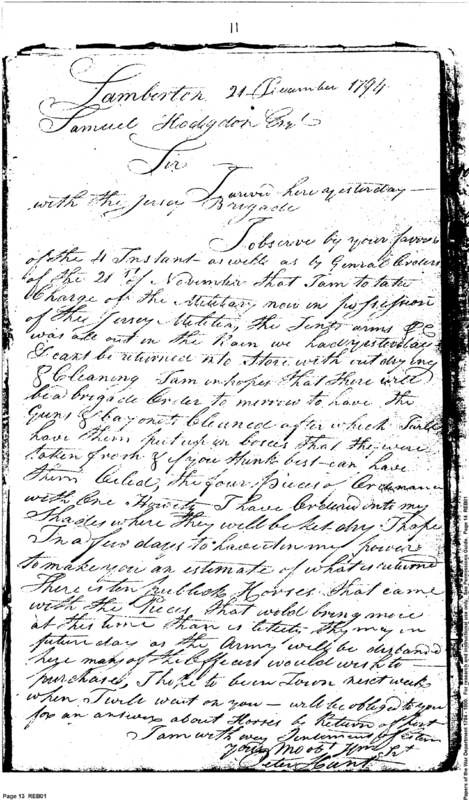 11
Lamberton 21 December 1794
Samuel Hodgdon Esqr
Sir
I arived here yesterday
with the Jersey Brigade
I observe by your favour
of the 4 Instant as well as by Genral Orders
of the 21st of November that I am to take
Charge of the Military now in possession
of the Jersey Militia, the Tents arms &C
was all out in the Rain we had yesterday
& cant be returned into Store with out drying
& Cleaning I am in hopes that there will
be a brigade Order to morrow to have the
Guns & bayonets Cleaned after which I will
have them put up in boxes that the were
taken from & if you think best can have
them Oiled, the four pieces of Ordinance
with One Howitz I have Ordered into my
Shades where they will be kept dry I hope
In a few days to have it in my power
to make you an estimate of what is returned
There is ten publick Horses that came
with the pieces that wold bring more
at this time than is likely they may in
future day as the Army will be disband
here many of the Officers would wish to
purchase, I hope to be in Town next week
when I will wait on you — will be obliged to you
for an answer about Horses by Return of post
I am with every Sentiment of Esteem
your Most Obt Hum Srt
Peter Hunt
Page 13 REB01